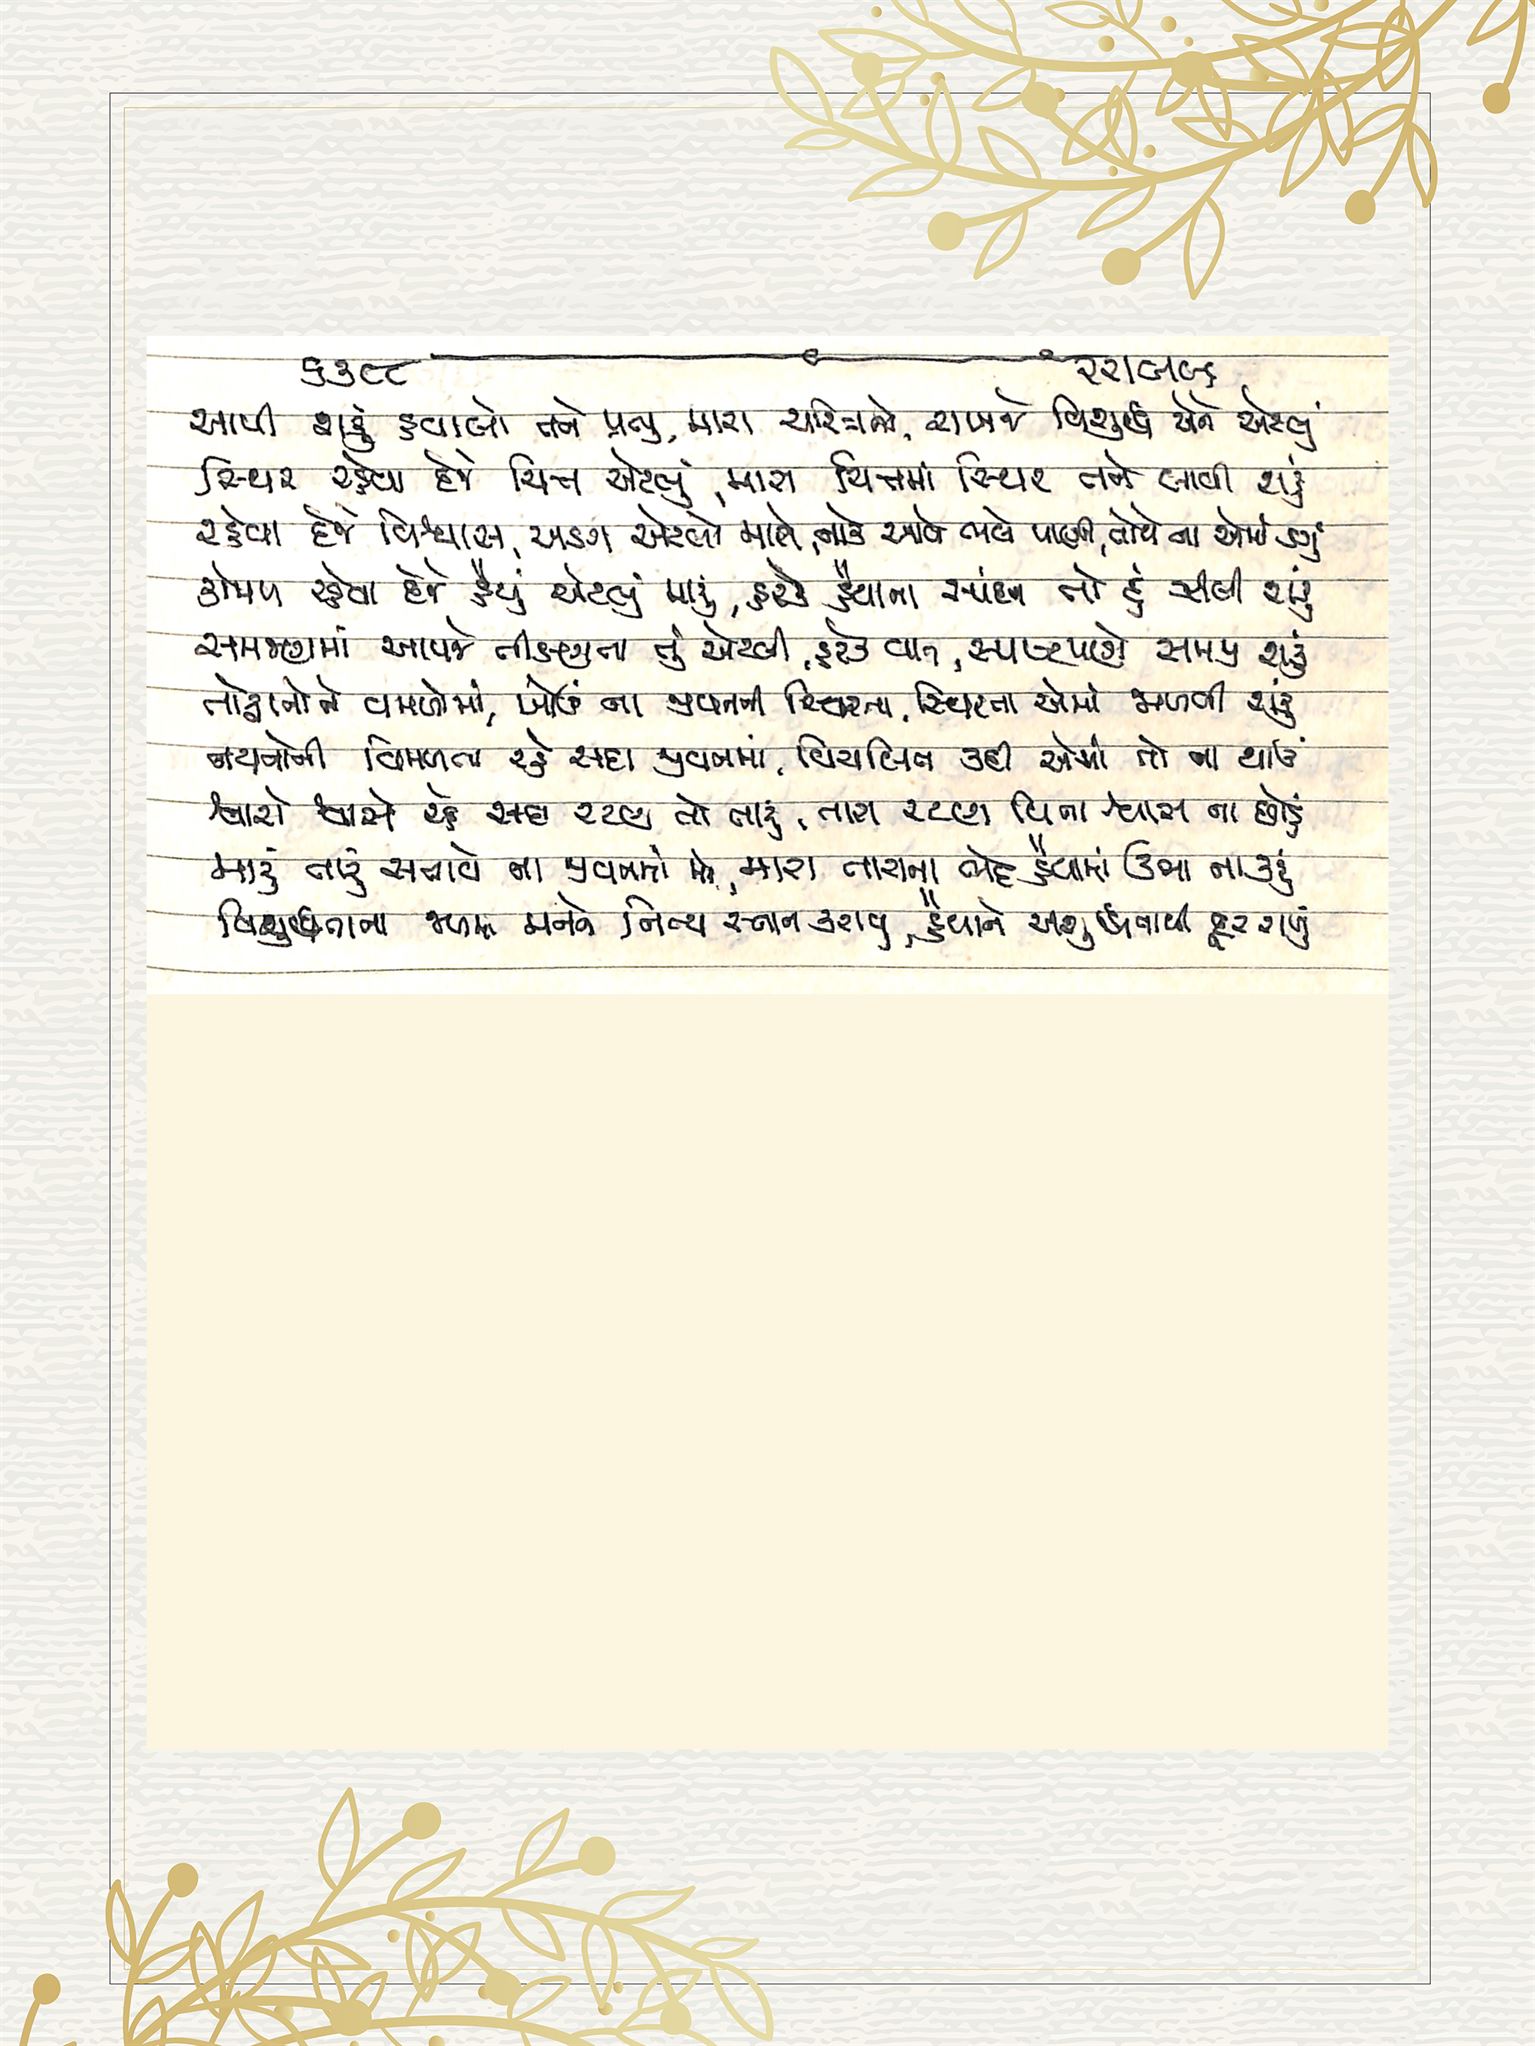 ૬૩૯૮ ૨૨ા૭ા૯૬
આપી શકું હવાલો તને પ્રભુ, મારા ચારિત્રનો, રાખજે વિશુદ્ધ એને એટલું
સ્થિર રહેવા દેજે ચિત્ત એટલું, મારા ચિત્તમાં સ્થિર તને લાવી શકું
રહેવા દેજે વિશ્વાસ, અડગ એટલો મારો, નાકે આવે ભલે પાણી, તોયે ના એમાં ડગું
કોમળ રહેવા દેજે હૈયું એટલું મારું, હરેક હૈયાના સ્પંદન તો હું ઝીલી શકું
સમજણમાં આપજે તીક્ષ્ણતા તું એટલી, હરેક વાત, સ્પષ્ટપણે સમજી શકું
તોફાનો ને વમળોમાં, ખોઉં ના જીવનની સ્થિરતા, સ્થિરતા એમાં જાળવી શકું
નયનોની વિમળતા રહે સદા જીવનમાં, વિચલિત કદી એમાં તો ના થાઉં
શ્વાસે શ્વાસે રહે સદા રટણ તો તારું, તારા રટણ વિના શ્વાસ ના છોડું
મારું તારું સતાવે ના જીવનમાં, મારા તારાના ભેદ હૈયામાં ઊભા ના કરું
વિશુદ્ધતાના મનને નિત્ય સ્નાન કરાવું, હૈયાને અશુદ્ધતાથી દૂર રાખું